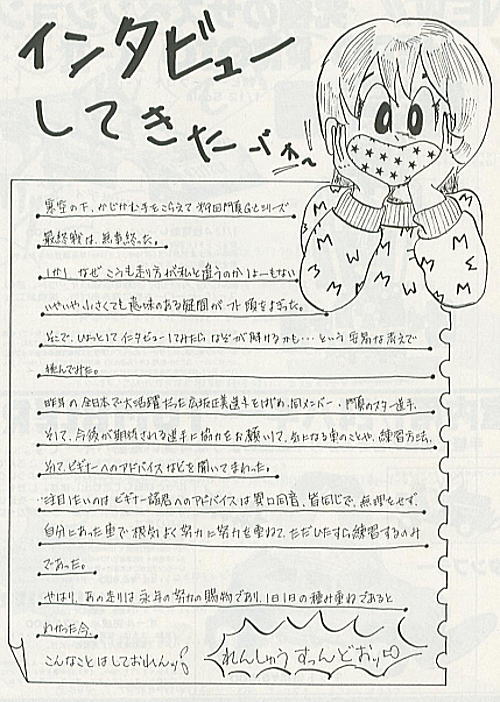 インタビュー
してきたゾォ〜
寒空の下、かじかむ手をこらえて 第9回門真GCシリーズ
最終戦は、無事終った。
しかし、なぜ こうも走り方が私と違うのか しょーもない
いやいや 小さくても意味のある疑問が一つ頭をよぎった。
そこで、ひょっとして インタビューしてみたら なぞが解けるかも…という 安易な考えで
挑んでみた。
昨年の全日本で大活躍だった広坂正美選手をはじめ、同メンバー・門真のスター選手、
そして、今後が期待される選手に協力をお願いして、気になる車のことや、練習方法、
そして、ビギナーへのアドバイスなどを聞いてまわった。
注目したいのは ビギナー諸君へのアドバイスは 異口同音、皆同じで、無理をせず、
自分にあった車で 根気よく努力に努力を重ねて、ただひたすら練習するのみ
であった。
やはり、あの走りは 永年の努力の賜物であり、1日1日の積み重ねであると
わかった今、
こんなことはしておれんッ!
れんしゅう すっんどおッ!